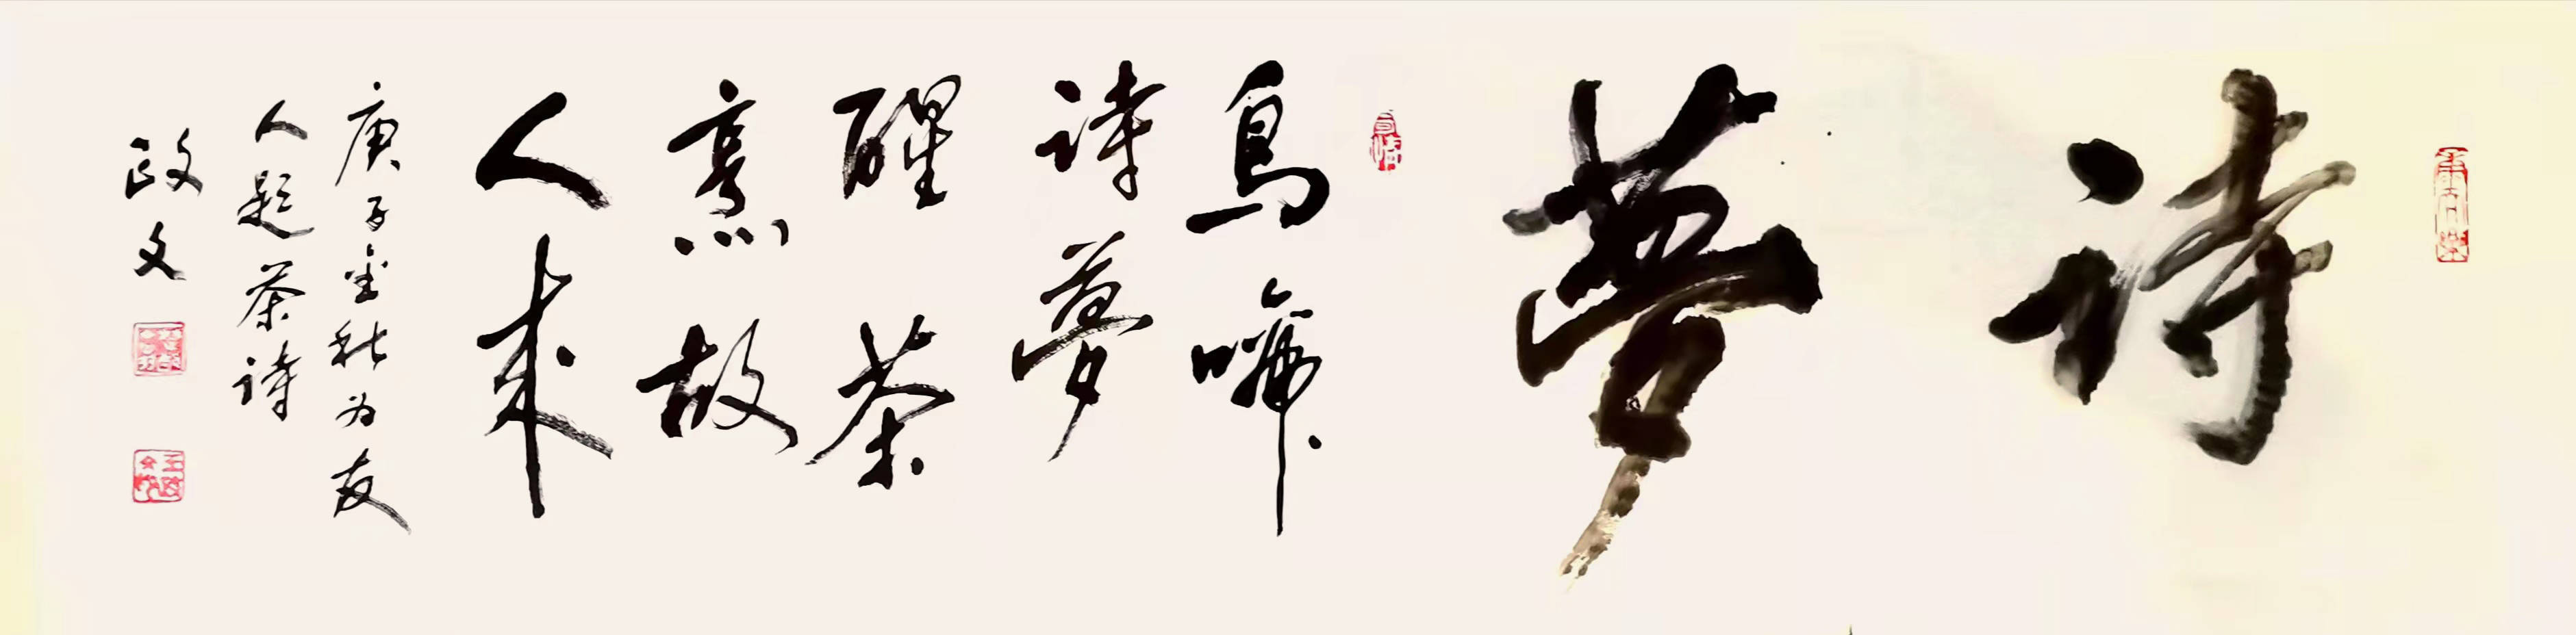 诗
夢
鳥啼
诗夢
醒茶
烹故
人来
庚子金秋为友
人题茶诗
政文